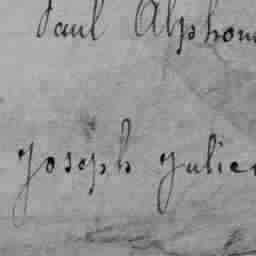 Paul Alphon
Joseph Julien